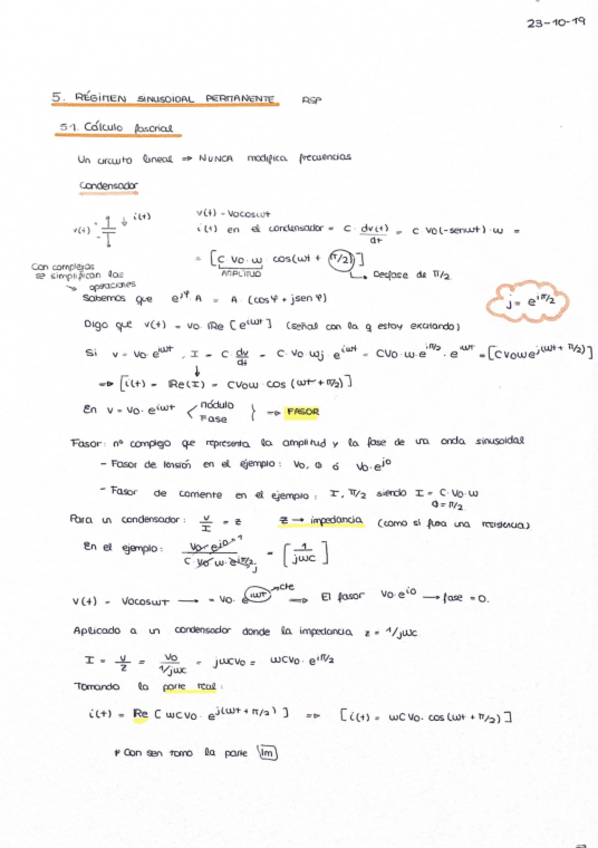 23-10-19
5. RÉGIMEN SINUSOIDAL PERMANENTE RSP
5.1. Cálculo fasorial
Un circuito lineal ⇒ NUNCA modifica frecuencias
Condensador
v(t) = Vocosωt
v(t) i(t) i(t) en el condensador = C · dv(t)/dt = C Vo(-senωt)·ω =
= [C Vo·ω cos(ωt + π/2)]
AMPLITUD Desfase de π/2
Con complejos
se simplifican las
operaciones
Sabemos que e^jφ. A = A · (cosφ + jsenφ) j = e^iπ/2
Digo que v(t) = Vo. Re [e^iωt] (señal con la q estoy excitando)
Si v = Vo·e^iωt, I = C dv/dt = C·Vo ωj·e^iωt = CVo·ω·e^iπ/2 · e^iωt = [CVoωe^j(ωt + π/2)]
⇒ [i(t) = Re(I) = CVoω·cos(ωt+π/2)]
En v = Vo·e^iωt < módulo
Fase } → FASOR
Fasor: nº complejo que representa la amplitud y la fase de una onda sinusoidal
- Fasor de tensión en el ejemplo: Vo, 0 ó Vo·e^j0
- Fasor de corriente en el ejemplo: I, π/2 siendo I = C·Vo·ω
θ = π/2
Para un condensador: V/I = Z Z → impedancia (como si fuera una resistencia)
En el ejemplo: Vo·e^j0 1 / C·Vo·ω·e^iπ/2 j = [1/jωC]
v(t) = Vocosωt → = Vo· e^iωt cte ⇒ El fasor Vo·e^i0 → fase = 0.
Aplicado a un condensador donde la impedancia z = 1/jωC
I = V/Z = Vo/1/jωC = jωCVo = ωCVo·e^iπ/2
Tomando la parte real:
i(t) = Re [ωCVo·e^j(ωt+π/2)] ⇒ [i(t) = ωCVo·cos(ωt+π/2)]
* Con sen tomo la parte Im